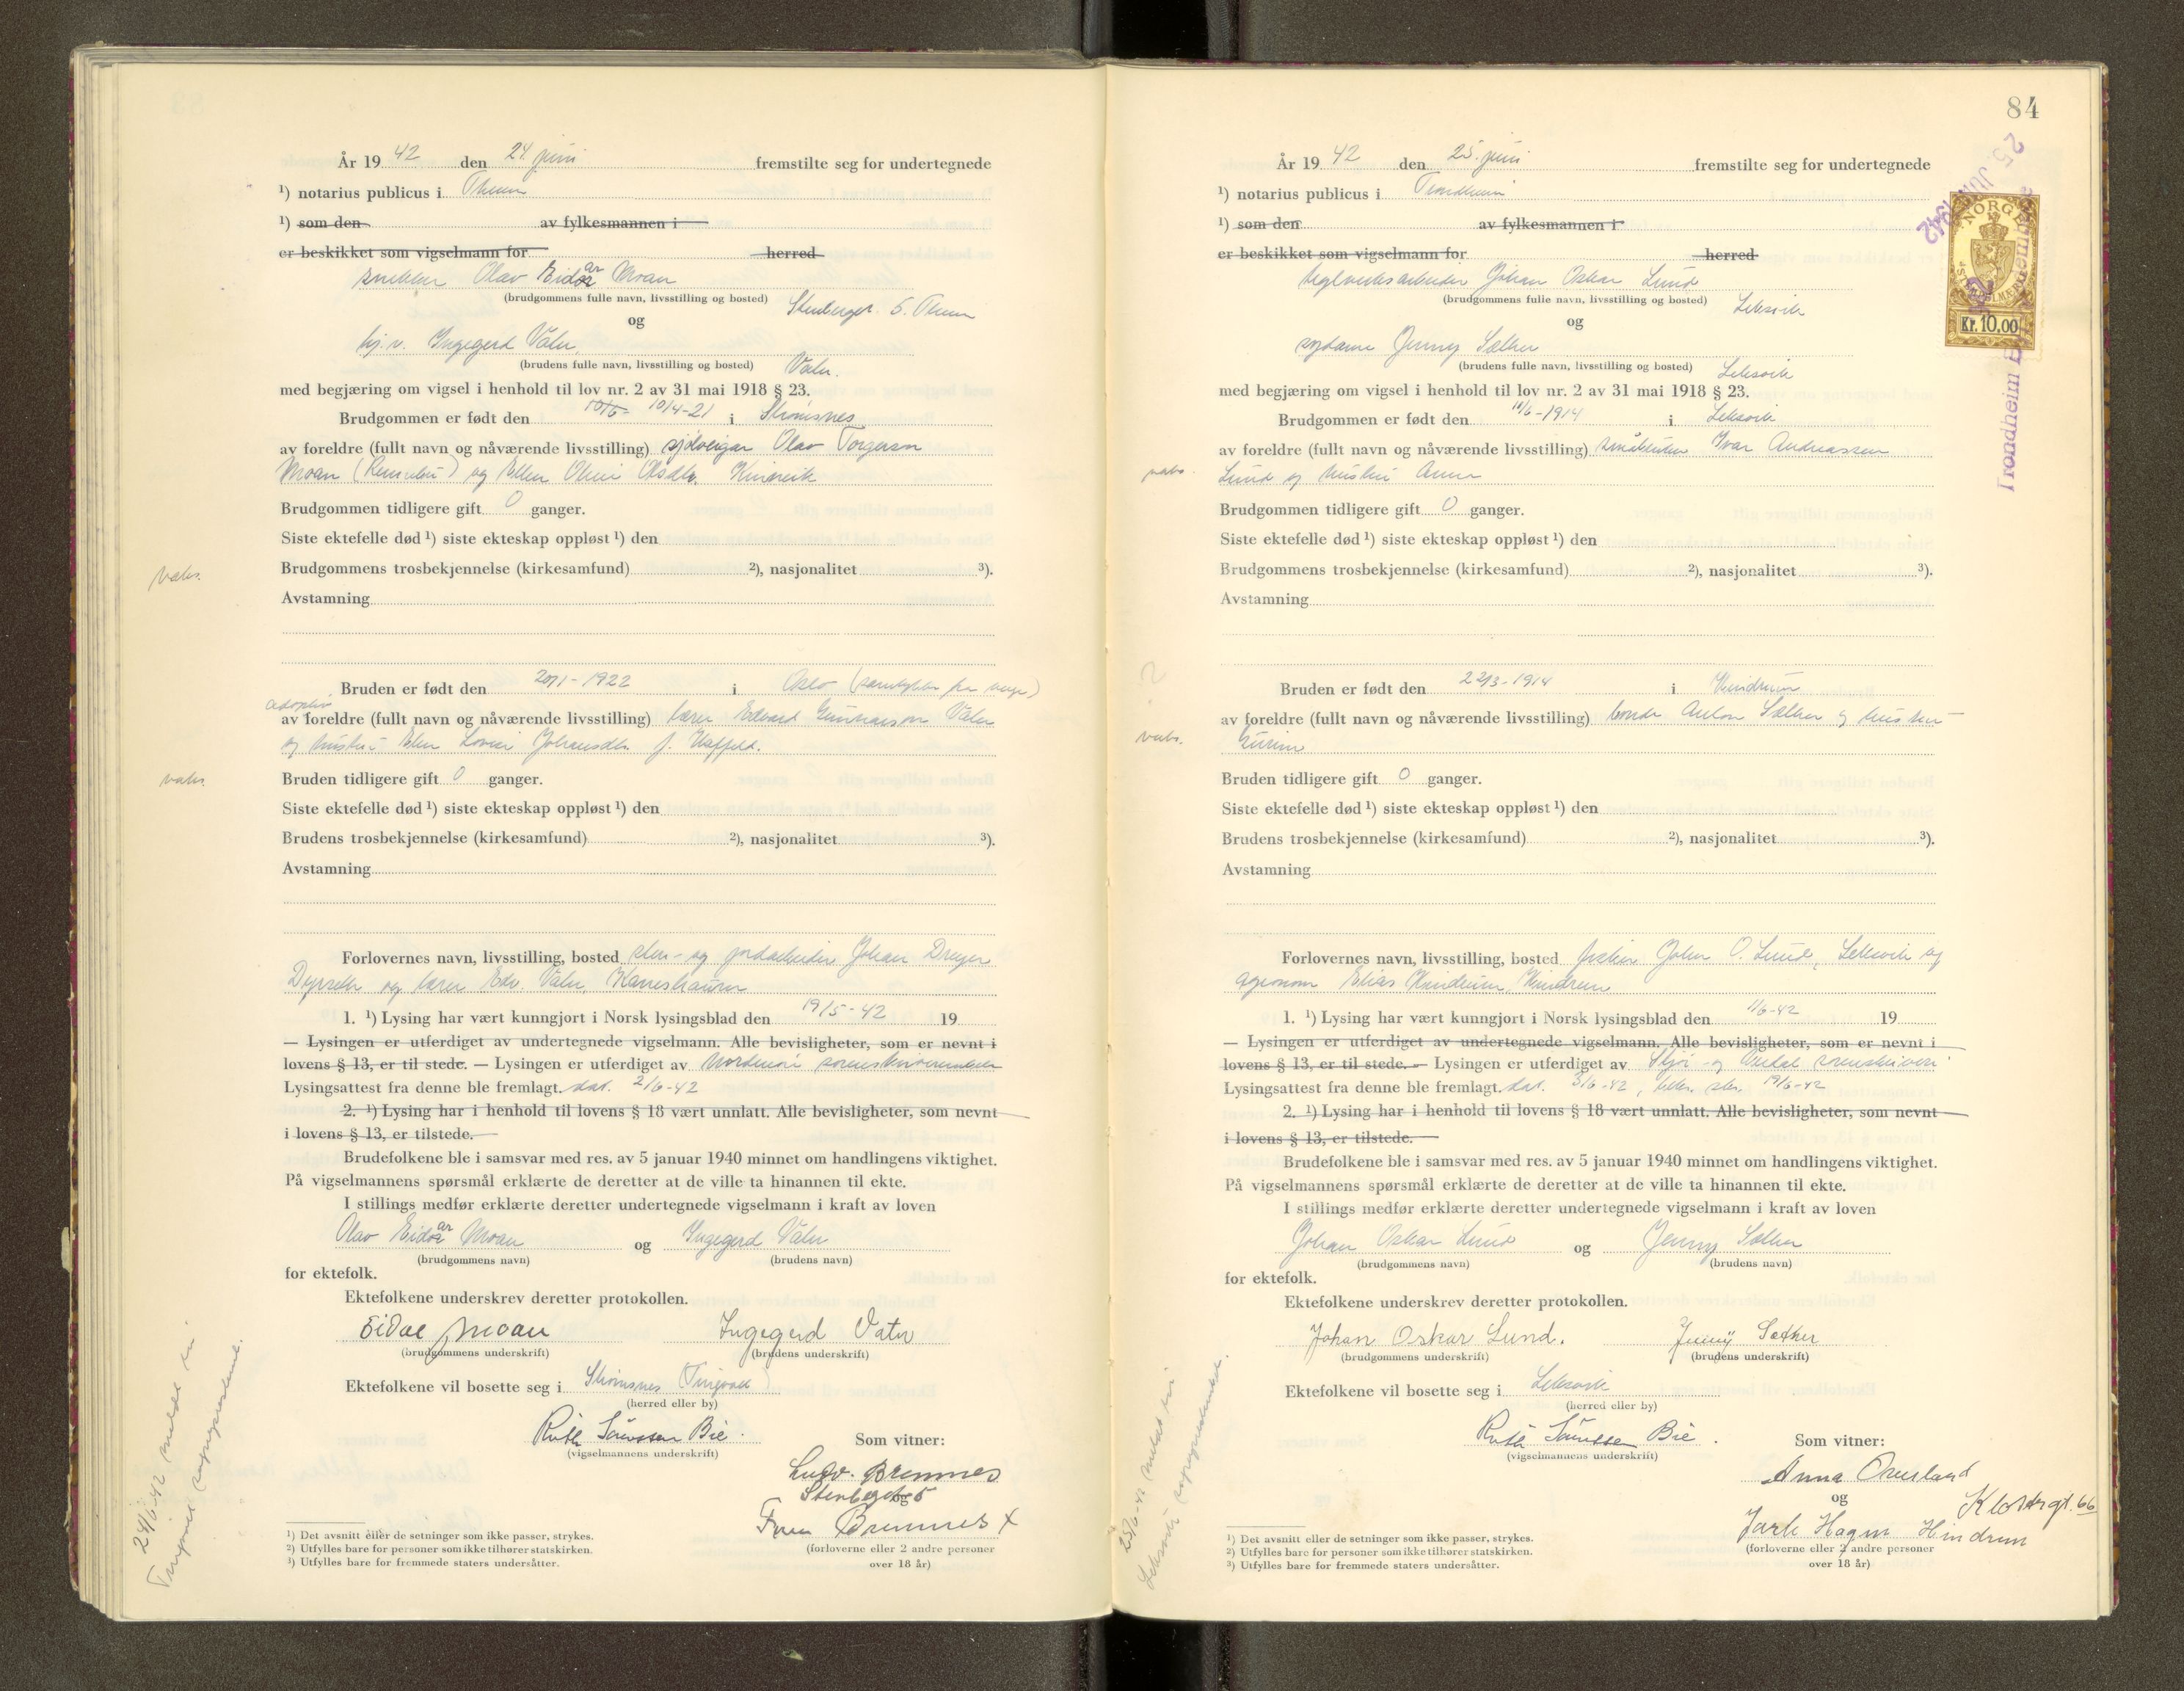 År 19 42 den 24 juni fremstilte seg for undertegnede
¹) notarius publicus i Them
¹) som den av fylkesmannen i
er beskikket som vigselmann for herred
snekker Olav Eidar Moan
(brudgommens fulle navn, livsstilling og bosted) Stenberggt. 5. Them
og
hj.v. Ingegerd Vatn
(brudens fulle navn, livsstilling og bosted) Vatn.
med begjæring om vigsel i henhold til lov nr. 2 av 31 mai 1918 § 23.
Brudgommen er født den 10/6- 10/4-21 i Strømsnes
av foreldre (fullt navn og nåværende livsstilling) sjølveigar Olav Torgersen
Moan (Rennebu) og Ellen Olsdtr.
Brudgommen tidligere gift 0 ganger.
Siste ektefelle død ¹) siste ekteskap oppløst ¹) den
Brudgommens trosbekjennelse (kirkesamfund) ²), nasjonalitet ³).
vaks.
Avstamning
Bruden er født den 20/1-1922 i Oslo
adoptiv
av foreldre (fullt navn og nåværende livsstilling) lærer Edvard Gunnarson Vatn
og hustru Elen Lovise Johansdtr. f.
Bruden tidligere gift 0 ganger.
vaks.
Siste ektefelle død ¹) siste ekteskap oppløst ¹) den
Brudens trosbekjennelse (kirkesamfund) ²), nasjonalitet ³).
Avstamning
Forlovernes navn, livsstilling, bosted sten- og jordarbeider Johan Dreyer
og lærer Edv. Vatn,
1. ¹) Lysing har vært kunngjort i Norsk lysingsblad den 19/5-42 19
— Lysingen er utferdiget av undertegnede vigselmann. Alle bevisligheter, som er nevnt i
lovens § 13, er til stede. — Lysingen er utferdiget av Nordmøre sorenskriverembete
Lysingsattest fra denne ble fremlagt. dat. 2/6-42
2. ¹) Lysing har i henhold til lovens § 18 vært unnlatt. Alle bevisligheter, som nevnt
i lovens § 13, er tilstede.
Brudefolkene ble i samsvar med res. av 5 januar 1940 minnet om handlingens viktighet.
På vigselmannens spørsmål erklærte de deretter at de ville ta hinannen til ekte.
I stillings medfør erklærte deretter undertegnede vigselmann i kraft av loven
Olav Eidar Moan og Ingegerd Vatn
(brudgommens navn) (brudens navn)
for ektefolk.
Ektefolkene underskrev deretter protokollen.
Eidar Moan Ingegerd Vatn
(brudgommens underskrift) (brudens underskrift)
Ektefolkene vil bosette seg i Strømsnes (Tingvoll)
(herred eller by)
Ruth Sørnssen Bie.
(vigselmannens underskrift) Som vitner:
Ludv. Bremnes
Stenberggt 5
og
Bremnes
(forloverne eller 2 andre personer
over 18 år)
24/6-42 meldt til
Tingvoll sogneprestemb.
¹) Det avsnitt eller de setninger som ikke passer, strykes.
²) Utfylles bare for personer som ikke tilhører statskirken.
³) Utfylles bare for fremmede staters undersåtter.
84
År 19 42 den 25. juni fremstilte seg for undertegnede
¹) notarius publicus i Trondheim
¹) som den av fylkesmannen i
er beskikket som vigselmann for herred
teglverksarbeider Johan Oskar Lund
(brudgommens fulle navn, livsstilling og bosted) Leksvik
og
sydame Jenny Sæther
(brudens fulle navn, livsstilling og bosted) Leksvik
med begjæring om vigsel i henhold til lov nr. 2 av 31 mai 1918 § 23.
25 JUNI 1942
NORGE
Kr. 10.00
Trondheim Byfogdembede
Brudgommen er født den 11/6-1914 i Leksvik
av foreldre (fullt navn og nåværende livsstilling) småbruker Ivar Andreassen
vaks.
Lund og hustru Anna
Brudgommen tidligere gift 0 ganger.
Siste ektefelle død ¹) siste ekteskap oppløst ¹) den
Brudgommens trosbekjennelse (kirkesamfund) ²), nasjonalitet ³).
Avstamning
Bruden er født den 22/3-1914 i Hindrum
av foreldre (fullt navn og nåværende livsstilling) bonde Anton Sæther og hustru
vaks.
Bruden tidligere gift 0 ganger.
Siste ektefelle død ¹) siste ekteskap oppløst ¹) den
Brudens trosbekjennelse (kirkesamfund) ²), nasjonalitet ³).
Avstamning
Forlovernes navn, livsstilling, bosted fisker Johan O. Lund, Leksvik og
agronom Elias Hindrum, Hindrum
1. ¹) Lysing har vært kunngjort i Norsk lysingsblad den 1/6-42 19
— Lysingen er utferdiget av undertegnede vigselmann. Alle bevisligheter, som er nevnt i
lovens § 13, er til stede. — Lysingen er utferdiget av Stjør- og Verdal sorenskriveri
Lysingsattest fra denne ble fremlagt. dat. 3/6-42, 19/6-42
2. ¹) Lysing har i henhold til lovens § 18 vært unnlatt. Alle bevisligheter, som nevnt
i lovens § 13, er tilstede.
Brudefolkene ble i samsvar med res. av 5 januar 1940 minnet om handlingens viktighet.
På vigselmannens spørsmål erklærte de deretter at de ville ta hinannen til ekte.
I stillings medfør erklærte deretter undertegnede vigselmann i kraft av loven
Johan Oskar Lund og Jenny Sæther
(brudgommens navn) (brudens navn)
for ektefolk.
Ektefolkene underskrev deretter protokollen.
Johan Oskar Lund. Jenny Sæther
(brudgommens underskrift) (brudens underskrift)
Ektefolkene vil bosette seg i Leksvik
(herred eller by)
Ruth Sørnssen Bie.
(vigselmannens underskrift) Som vitner:
Anna Overland
og Klostergt. 66
Jarle Hagen Hindrum
(forloverne eller 2 andre personer
over 18 år)
25/6-42 meldt til
Leksvik sogneprestembede.
¹) Det avsnitt eller de setninger som ikke passer, strykes.
²) Utfylles bare for personer som ikke tilhører statskirken.
³) Utfylles bare for fremmede staters undersåtter.